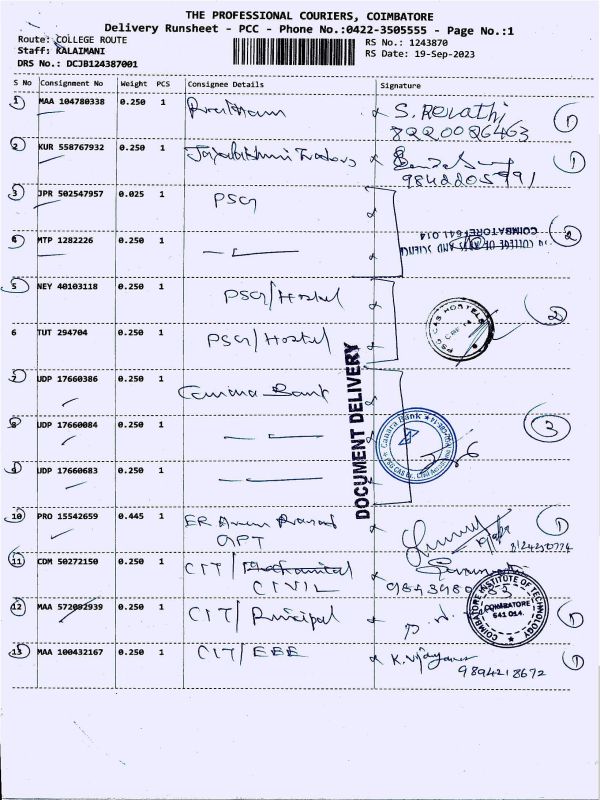 THE PROFESSIONAL COURIERS, COIMBATORE
Delivery Runsheet - PCC - Phone No.:0422-3505555 - Page No.:1
Route: COLLEGE ROUTE
Staff: KALAIMANI
DRS No.: DCJB124387001
RS No.: 1243870
RS Date: 19-Sep-2023
S No Consignment No Weight PCS Consignee Details Signature
1 MAA 104780338 0.250 1 S. Revathi 1
8220086463
2 KUR 558767932 0.250 1 1
9842205991
3 JPR 502547957 0.025 1 PSG
COIMBATORE-641 014 2
COLLEGE OF ARTS AND SCIENCE
4 MTP 1282226 0.250 1
5 NEY 40103118 0.250 1 PSG/Hostel 2
PSG CAS HOSTELS
CBE-14
6 TUT 294704 0.250 1 PSG/Hostel
DOCUMENT DELIVERY
7 UDP 17660386 0.250 1 Canara Bank
8 UDP 17660084 0.250 1 3
Canara Bank
9 UDP 17660683 0.250 1
10 PRO 15542659 0.445 1 ER Arun Prasad 1
GPT
11 CDM 50272150 0.250 1 CIT/Mechanical
CIVIL
12 MAA 572082939 0.250 1 CIT/Principal 1
COIMBATORE INSTITUTE OF TECHNOLOGY
COIMBATORE
641 014.
13 MAA 100432167 0.250 1 CIT/EEE K. 1
9894218672